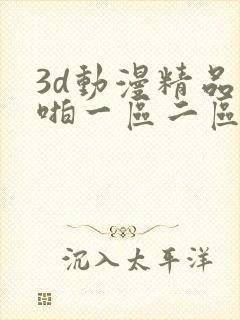 3d動漫精品
啪一區二區
沉入太平洋